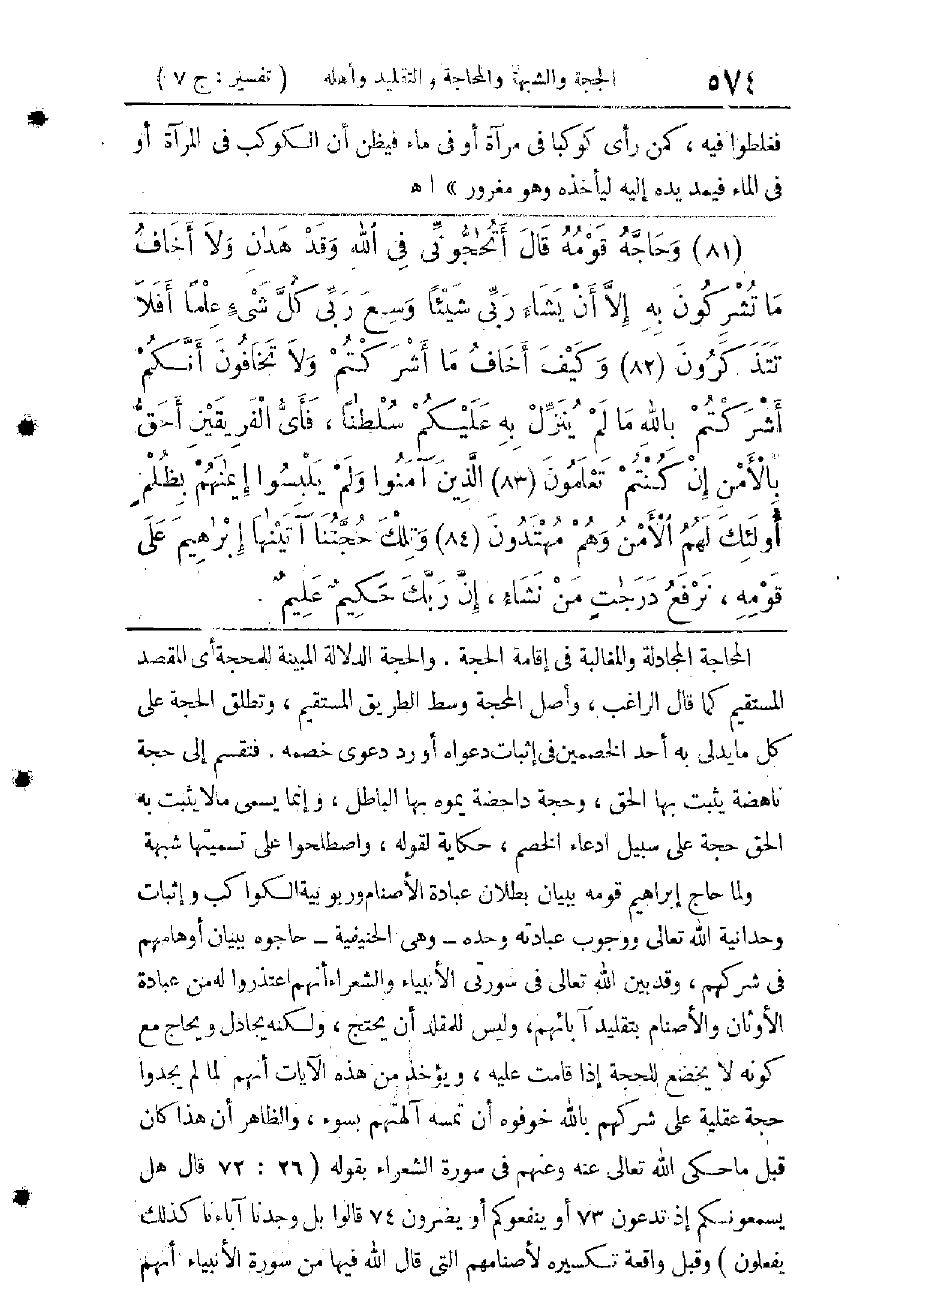 ٥٧٤ الحجة والشبهة والمحاجة والتقليد وأهله ( تفسير : ج ٧ )
فغلطوا فيه ، كمن رأى كوكبا فى مرآة أو فى ماء فيظن أن الكوكب فى المرآة أو
فى الماء فيمد يده إليه ليأخذه وهو مغرور » ا ه
(٨١) وَحَاجَّهُ قَوْمُهُ قَالَ أَتُحٰجُّونِّى فِى اللهِ وَقَدْ هَدٰنِ وَلاَ أَخَافُ
مَا تُشْرِكُونَ بِهِ إِلاَّ أَنْ يَشَاءَ رَبِّى شَيْئًا وَسِعَ رَبِّى كُلَّ شَىْءٍ عِلْمًا أَفَلاَ
تَتَذَكَّرُونَ (٨٢) وَكَيْفَ أَخَافُ مَا أَشْرَكْتُمْ وَلاَ تَخَافُونَ أَنَّكُمْ
أَشْرَكْتُمْ بِاللهِ مَا لَمْ يُنَزِّلْ بِهِ عَلَيْكُمْ سُلْطٰنًا ، فَأَىُّ الْفَرِيقَيْنِ أَحَقُّ
بِالْأَمْنِ إِنْ كُنْتُمْ تَعْلَمُونَ (٨٣) الَّذِينَ آمَنُوا وَلَمْ يَلْبِسُوا إِيمٰنَهُمْ بِظُلْمٍ
أُولَئِكَ لَهُمُ الْأَمْنُ وَهُمْ مُهْتَدُونَ (٨٤) وَتِلْكَ حُجَّتُنَا آتَيْنٰهَا إِبْرٰهِيمَ عَلَى
قَوْمِهِ ، نَرْفَعُ دَرَجٰتٍ مَنْ نَشَاءُ ، إِنَّ رَبَّكَ حَكِيمٌ عَلِيمٌ .
المحاجة المجادلة والمغالبة فى إقامة الحجة . والحجة الدلالة المبينة للمحجة أى المقصد
المستقيم كما قال الراغب ، وأصل المحجة وسط الطريق المستقيم ، وتطلق الحجة على
كل ما يدلى به أحد الخصمين فى إثبات دعواه أو رد دعوى خصمه . فتقسم إلى حجة
ناهضة يثبت بها الحق ، وحجة داحضة يموه بها الباطل ، وإنما يسمى مالا يثبت به
الحق حجة على سبيل ادعاء الخصم ، حكاية لقوله ، واصطلحوا على تسميتها شبهة
ولما حاج إبراهيم قومه ببيان بطلان عبادة الأصنام وربوبية الكواكب وإثبات
وحدانية الله تعالى ووجوب عبادته وحده ــ وهى الحنيفية ــ حاجوه ببيان أوهامهم
فى شركهم ، وقد بين الله تعالى فى سورتى الأنبياء والشعراء أنهم اعتذروا له من عبادة
الأوثان والأصنام بتقليد آبائهم، وليس للمقلد أن يحتج ، ولكنه يجادل ويحاج مع
كونه لا يخضع للحجة إذا قامت عليه ، ويؤخذ من هذه الآيات أنهم لما لم يجدوا
حجة عقلية على شركهم بالله خوفوه أن تمسه آلهتهم بسوء ، والظاهر أن هذا كان
قبل ما حكى الله تعالى عنه وعنهم فى سورة الشعراء بقوله ( ٢٦ : ٧٢ قال هل
يسمعونكم إذ تدعون ٧٣ أو ينفعوكم أو يضرون ٧٤ قالوا بل وجدنا آباءنا كذلك
يفعلون ) وقبل واقعة تكسيره لأصنامهم التى قال الله فيها من سورة الأنبياء أنهم